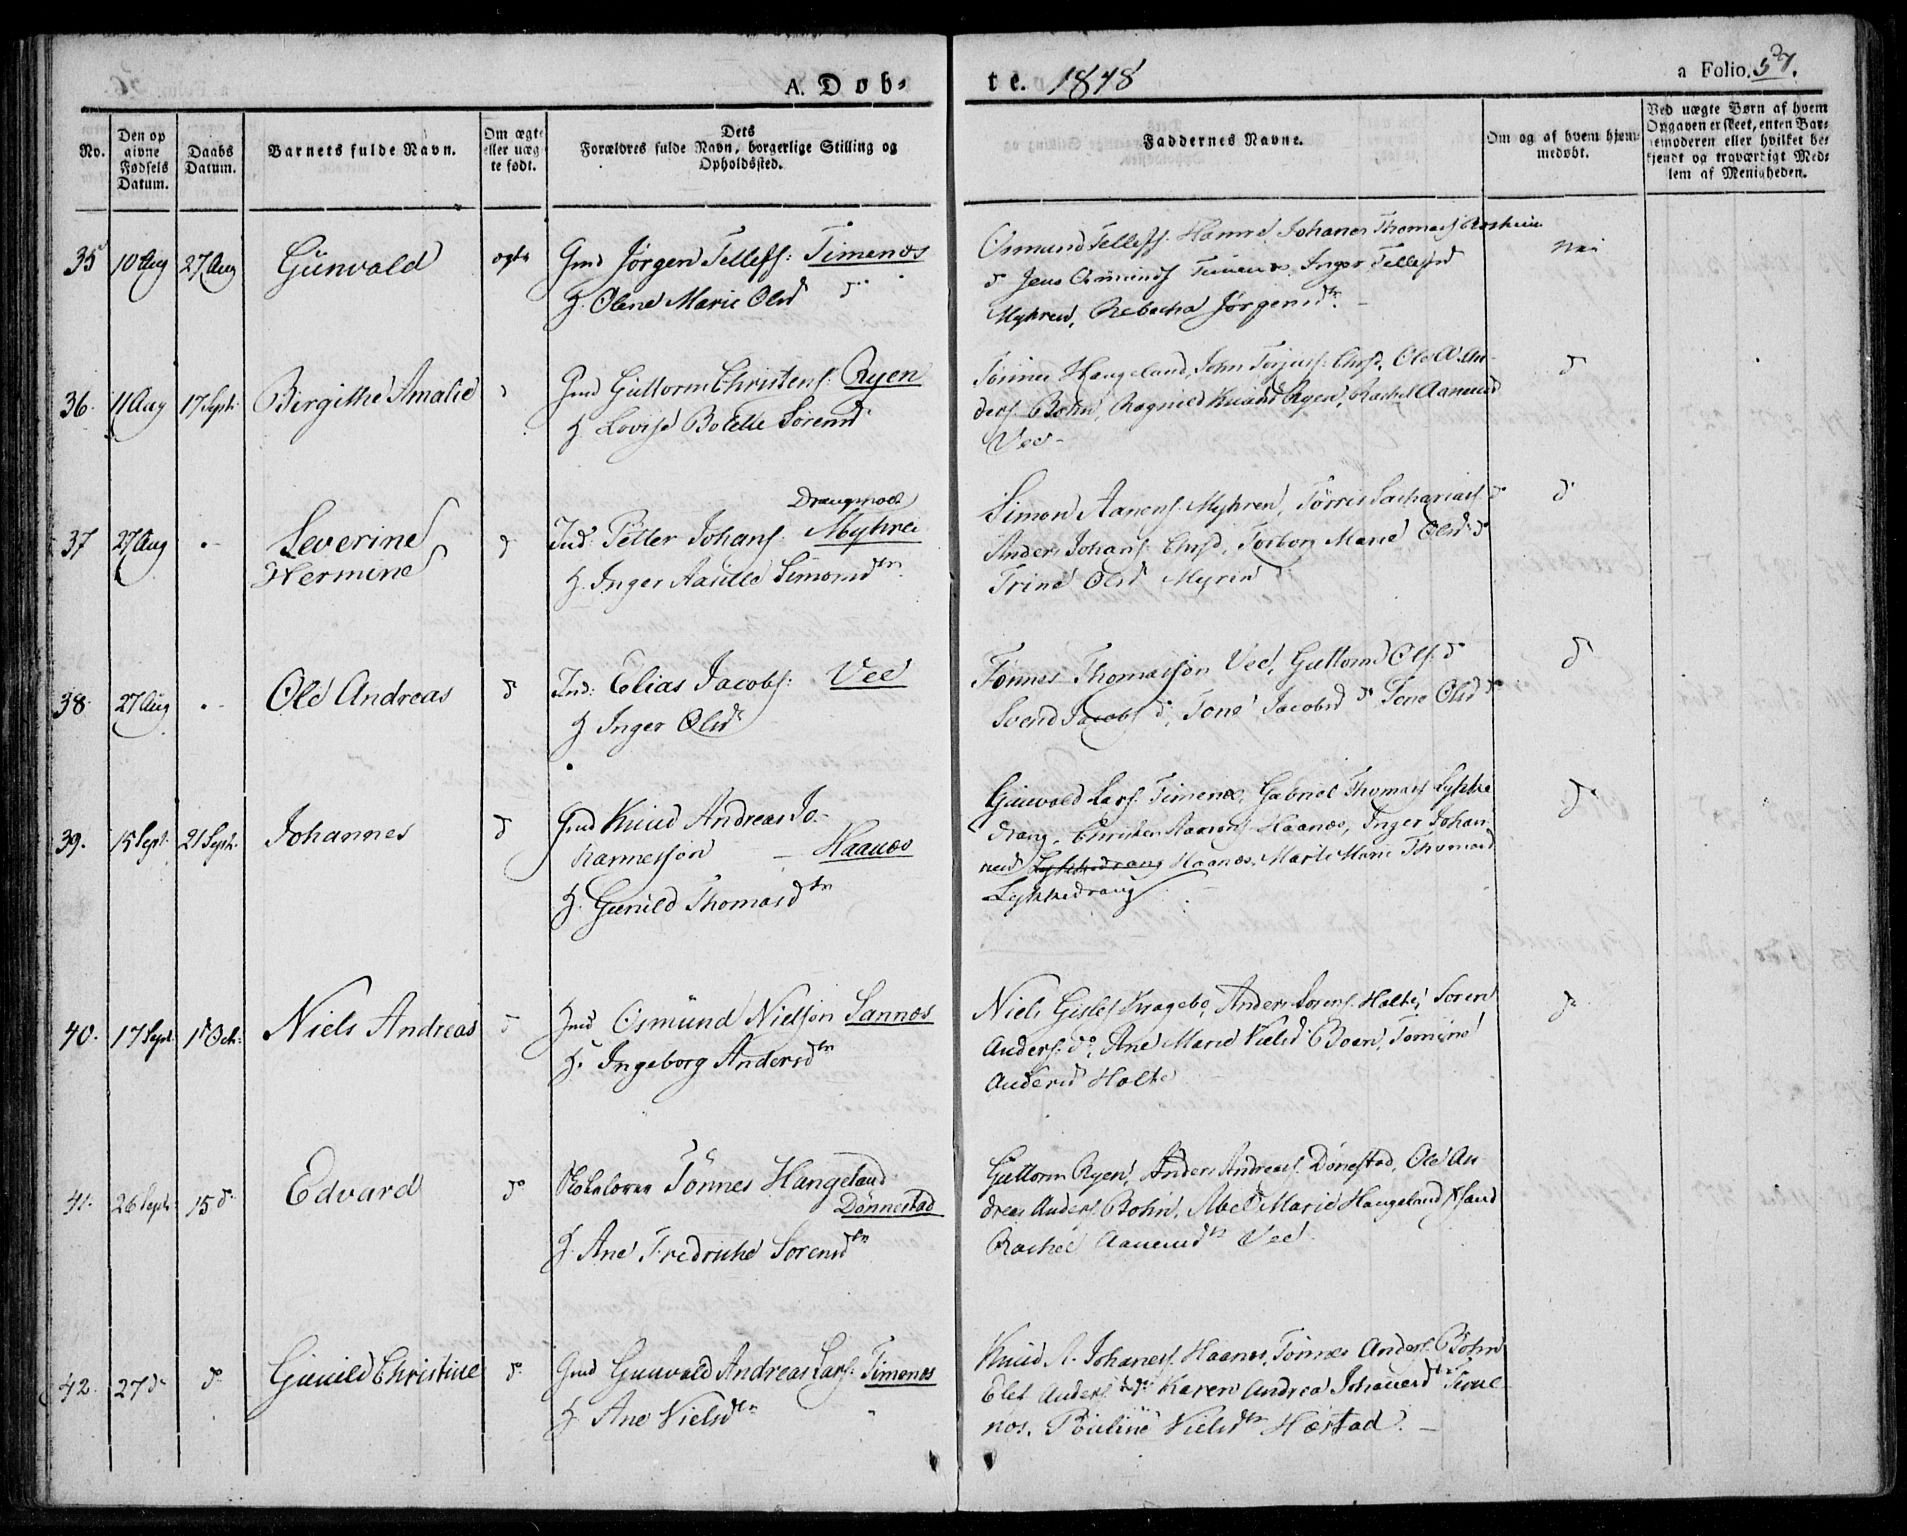 A. Døb-
te. 1848
a Folio. 57.
No.
Den op
givne
Fødsels
Datum.
Daabs
Datum.
Barnets fulde Navn.
Om ægte
eller uæg
te født.
Dets
Forældres fulde Navn, borgerlige Stilling og
Opholdssted.
Faddernes Navne.
Om og af hvem hjem-
medøbt.
Ved uægte Børn af hvem
Opgaven er skeet, enten Bar-
nemoderen eller hvilket be-
kjendt og troværdigt Med-
lem af Menigheden.
35 10 Aug 27 Aug Gunvold ægte Gmd Jørgen Tellefs: Timenæs
H. Olene Marie Olsd do
Osmund Tellefs. Hamre Johanes Thomas
do Jens Osmunds Timenæs, Inger Tellefsd
Myhren, Rebecha Jørgensdtr.
Nei
36. 11 Aug 17 Septr Birgithe Amalie do Gmd Guttorm Christens. Ryen
H Lovise Bolette Sørensd
Tønnes Hangeland, John Torjus. Ole A. An-
ders Bohn, Ragnild Knudsd Ryen, Rachel Aanensd
Vee
do
37 27 Aug - Severine
Hermine do Ind: Petter Johans. Myhren
Drangsholt
H. Inger Aasille Simonsdtr.
Simon Aanens. Myhren, Tørres Zachariass. do
Anders Johans. Torbor Marie Olsd do
Trine Olsd Myren
do
38. 27 Aug - Ole Andreas do Ind: Elias Jacobs: Vee
H Inger Olsdr
Tønnes Thomassøn Vee, Guttorm Ols. do
Svend Jacobs do, Tone Jacobsd do Tone Olsd do
do
39. 15 Sept. 21 Septr. Johannes do Gmd Knud Andreas Jo-
hannessøn - Haanæs
H. Gunild Thomasdtr
Gunvold Lars. Timenæs, Gabriel Thomas Lykke
drang, Christen Aanens Haanæs, Inger Johan-
nesd Lykkedrang Haanæs, Marte Marie Thomasd
Lykkedrang
do
40. 17 Sept. 1 Octr: Niels Andreas do Gmd Osmund Nielsøn Sannæs
H. Ingeborg Andersdtr
Niels Gisles Kragebo, Anders Sørens. Holte, Søren
Anders. do, Ane Marie Nielsd Boen, Tomine
Andersd Holte
do
41. 26 Septr. 15 do Edvard do Skolelærer Tønnes Hangeland
Dønnestad
H. Ane Fredrikke Sørensdtr
Guttorm Ryen, Anders Andreas. Dønestad, Ole An-
dreas Anders. Bohn, Abel Marie Hangeland
Rachel Aanensdtr Vee.
42. 27 do do Gunild Christine do Gmd Gunvold Andreas Lars. Timenæs
H. Ane Nielsdtr
Knud A. Johaness. Haanæs, Tønnes Anders. Bohn
Elef Anders. do Karen Andrea Johanesdtr Time
næs. Pouline Nielsdtr Hæstad. -